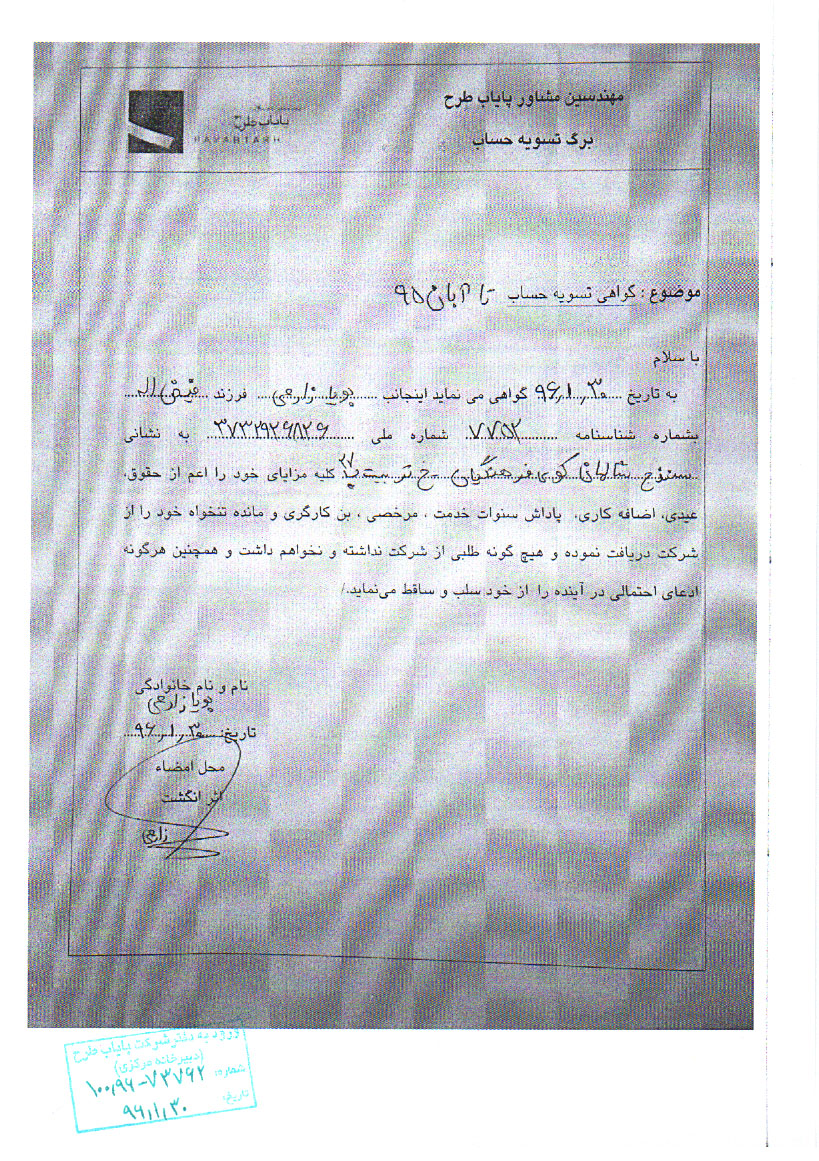 مهندسین مشاور پایاب طرح
برگ تسویه حساب
پایاب طرح
PAYABTARH
موضوع : گواهی تسویه حساب تا آبان ۹۵
با سلام
به تاریخ ۹۶,۱,۳۰ گواهی می نماید اینجانب پویا زارعی فرزند فیض اله
بشماره شناسنامه ۷۷۵۲ شماره ملی به نشانی
سنندج شالمان کوی فرهنگیان خ تربیت پ ۲۷ کلیه مزایای خود را اعم از حقوق،
عیدی، اضافه کاری، پاداش سنوات خدمت ، مرخصی ، بن کارگری و مانده تنخواه خود را از
شرکت دریافت نموده و هیچ گونه طلبی از شرکت نداشته و نخواهم داشت و همچنین هرگونه
ادعای احتمالی در آینده را از خود سلب و ساقط می‌نماید./
نام و نام خانوادگی
پویا زارعی
تاریخ: ۹۶,۱,۳۰
محل امضاء
اثر انگشت
زارعی
ورود به دفتر شرکت پایاب طرح
(دبیرخانه مرکزی)
شماره: ۱۰۰,۹۶-۷۳۷۶۲
تاریخ: ۹۶,۱,۳۰